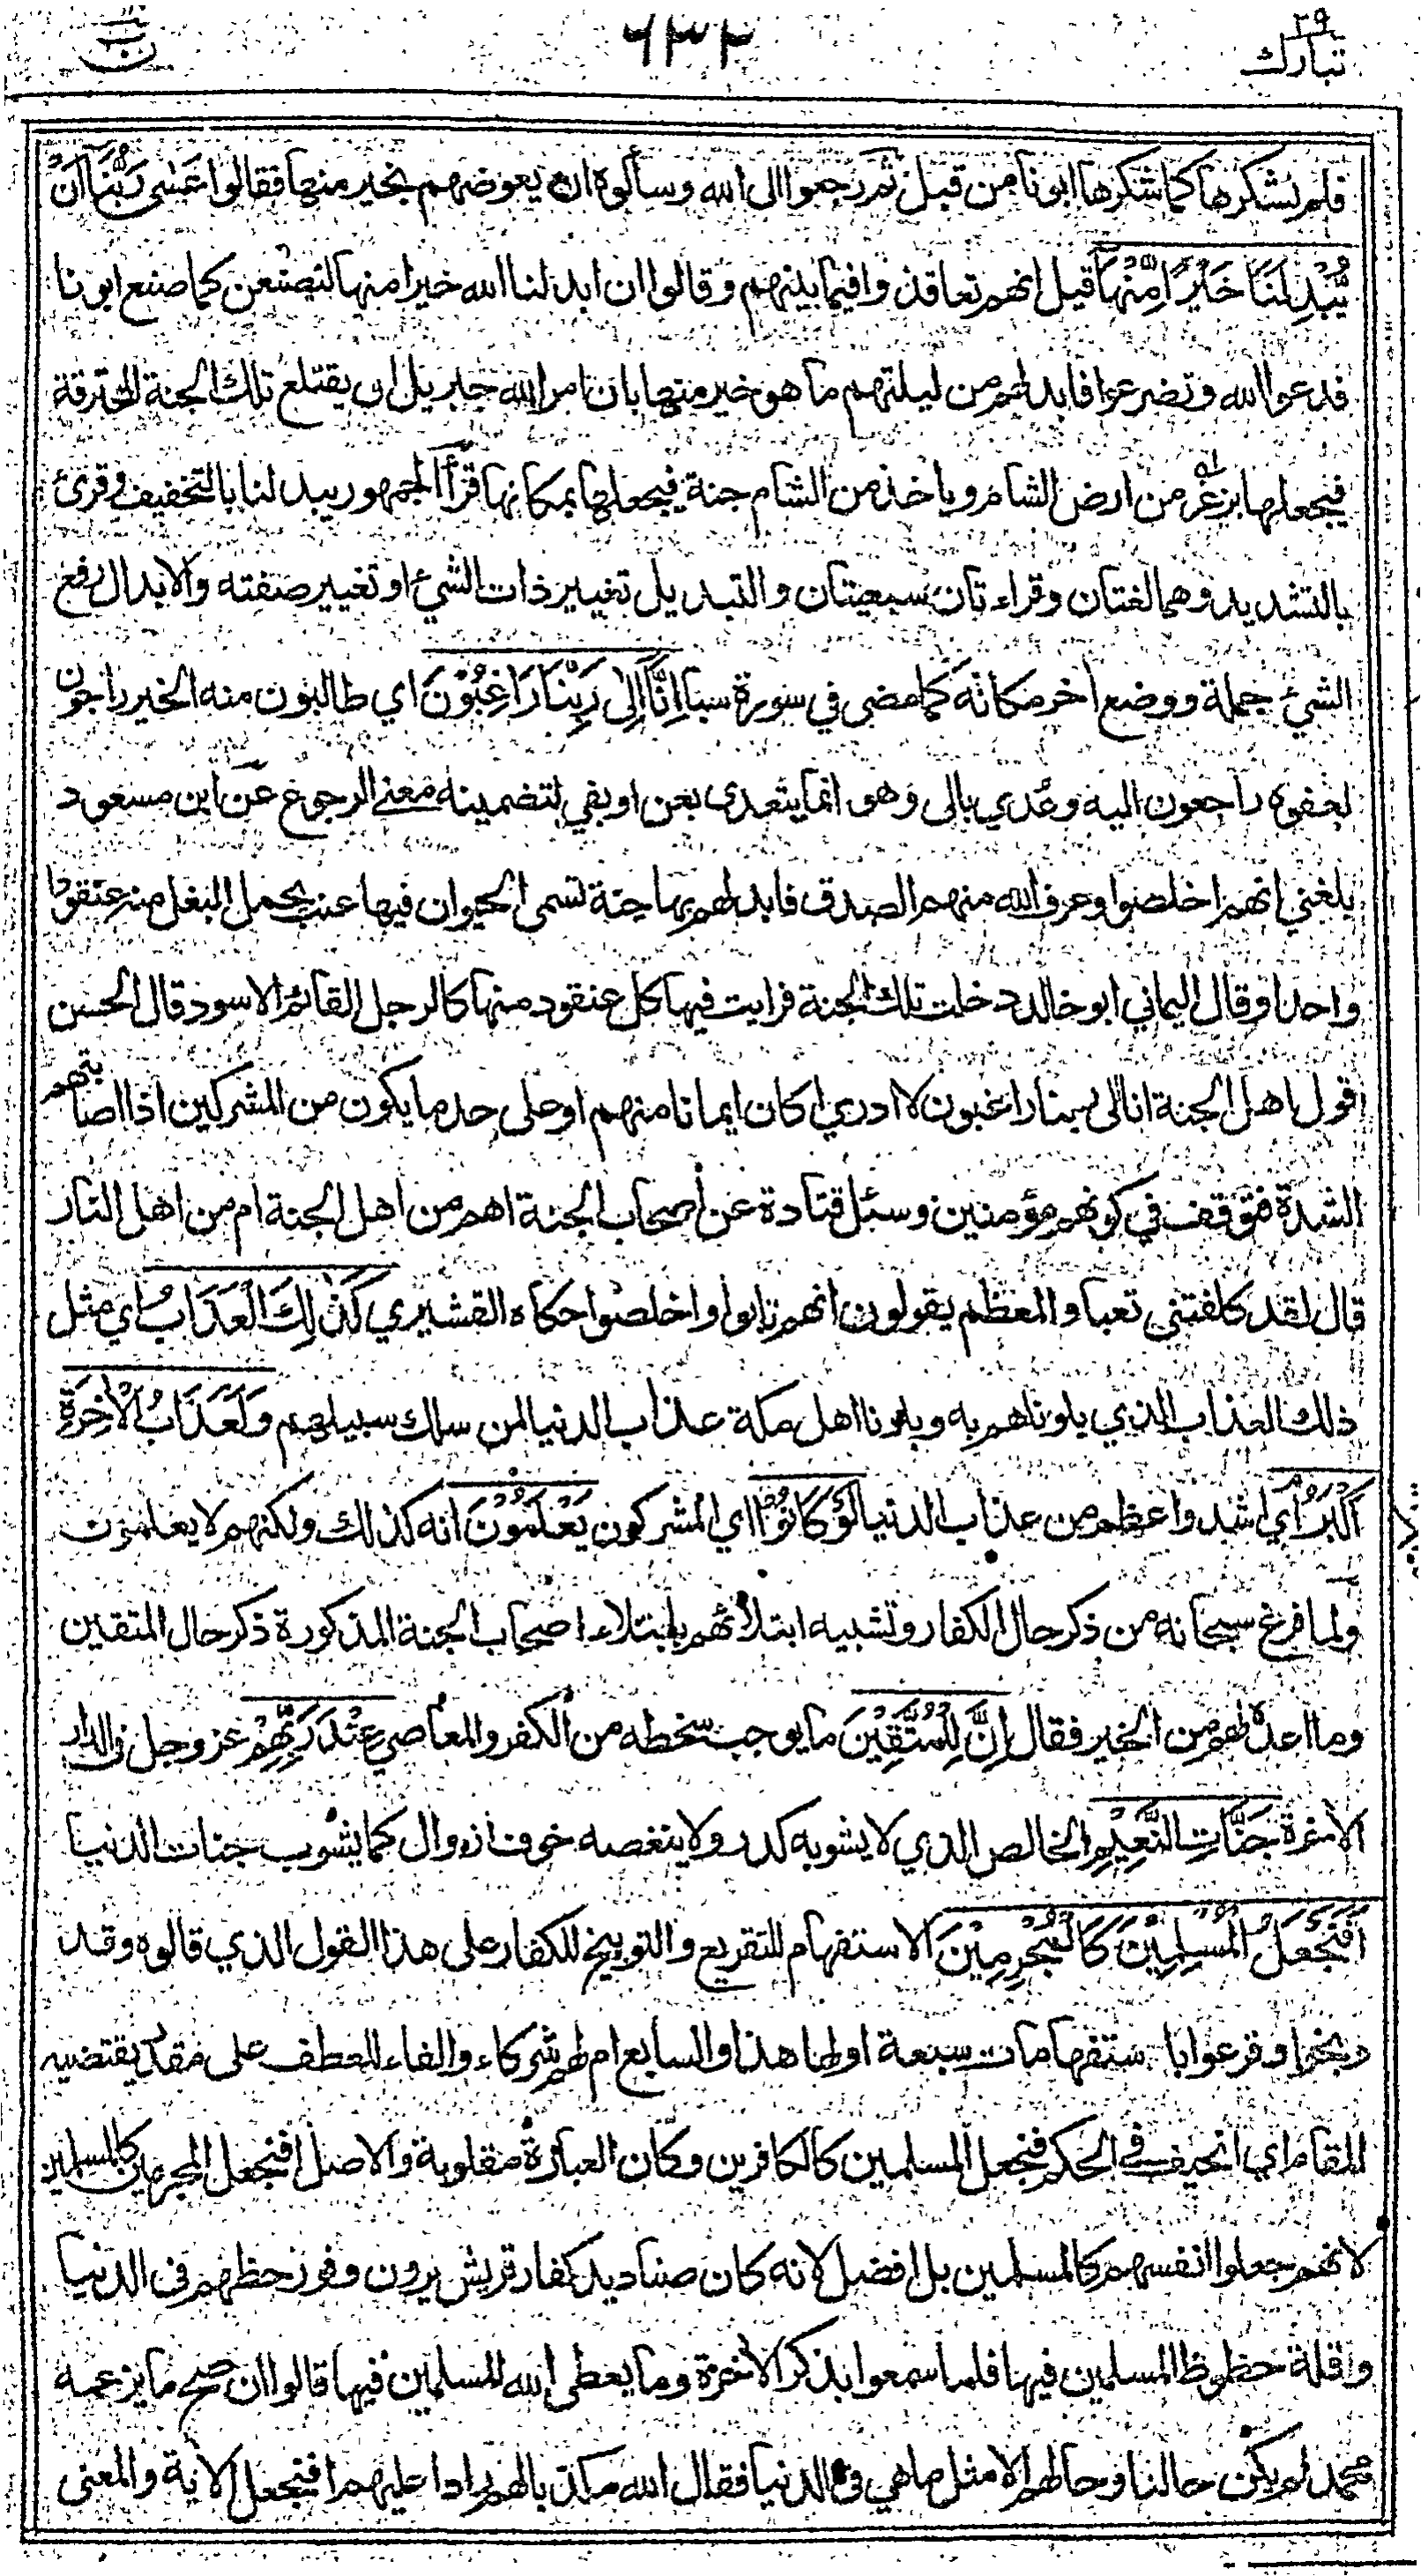 تبارك ٢٩
٦٣٢
ن
فلم نشكرها كما شكرها ابونا من قبل ثم رجعوا الى الله وسألوه ان يعوضهم بخير منها فقالوا عَسٰى رَبُّنَا اَنْ
يُّبْدِلَنَا خَيْرًا مِّنْهَا قيل انهم تعاقدوا فيما بينهم وقالوا ان ابدلنا الله خيرا منها لنصنعن كما صنع ابونا
فدعوا الله وتضرعوا فابدلهم من ليلتهم ما هو خير منها بان امر الله جبريل ان يقتلع تلك الجنة المحترقة
فيجعلها بزغر من ارض الشام وياخذ من الشام جنة فيجعلها بمكانها قرأ الجمهور يبدلنا بالتخفيف وقرئ
بالتشديد وهما لغتان وقراءتان سبعيتان والتبديل تغيير ذات الشيء او تغيير صفته والابدال رفع
الشيء جملة ووضع اخر مكانه كما مضى في سورة سبا اِنَّآ اِلٰى رَبِّنَا رَاغِبُوْنَ اي طالبون منه الخير راجون
لعفوه راجعون اليه وعُدي بالى وهو انما يتعدى بعن او بفي لتضمينه معنى الرجوع عن ابن مسعود
بلغني انهم اخلصوا وعرف الله منهم الصدق فابدلهم بها جنة تسمى الحيوان فيها عنب يحمل البغل منه عنقودا
واحدا وقال اليماني ابو خالد دخلت تلك الجنة فرايت فيها كل عنقود منها كالرجل القائم الاسود قال الحسن
قول اهل الجنة انا الى ربنا راغبون لا ادري اكان ايمانا منهم او على حد ما يكون من المشركين اذا اصابتهم
الشدة فتوقف في كونهم مؤمنين وسئل قتادة عن اصحاب الجنة اهم من اهل الجنة ام من اهل النار
قال لقد كلفتني تعبا والمعظم يقولون انهم تابوا واخلصوا حكاه القشيري كَذٰلِكَ الْعَذَابُ اي مثل
ذلك العذاب الذي بلوناهم به وبلونا اهل مكة عذاب الدنيا لمن سلك سبيلهم وَلَعَذَابُ الْاٰخِرَةِ
اَكْبَرُ اي اشد واعظم من عذاب الدنيا لَوْ كَانُوْا اي المشركون يَعْلَمُوْنَ انه كذلك ولكنهم لا يعلمون
ولما فرغ سبحانه من ذكر حال الكفار وتشبيه ابتلائهم بابتلاء اصحاب الجنة المذكورة ذكر حال المتقين
وما اعده لهم من الخير فقال اِنَّ لِلْمُتَّقِيْنَ ما يوجب سخطه من الكفر والمعاصي عِنْدَ رَبِّهِمْ عز وجل في الدار
الاخرة جَنّٰتِ النَّعِيْمِ الخالص الذي لا يشوبه كدر ولا ينغصه خوف زوال كما يشوب جنات الدنيا
اَفَنَجْعَلُ الْمُسْلِمِيْنَ كَالْمُجْرِمِيْنَ الاستفهام للتقريع والتوبيخ للكفار على هذا القول الذي قالوه وقد
وبخوا وقرعوا باستفهامات سبعة اولها هذا والسابع ام لهم شركاء والفاء للعطف على مقدر يقتضيه
المقام اي انحيف في الحكم فنجعل المسلمين كالكافرين وكان العبارة مقلوبة والاصل افنجعل المجرمين كالمسلمين
لانهم جعلوا انفسهم كالمسلمين بل افضل لانه كان صناديد كفار قريش يرون وفور حظهم في الدنيا
وقلة حظوظ المسلمين فيها فلما سمعوا بذكر الاخرة وما يعطى الله المسلمين فيها قالوا ان صح ما يزعمه
محمد لم يكن حالنا وحالهم الا مثل ما هي في الدنيا فقال الله مكذبا لهم رادا عليهم افنجعل الاية والمعنى